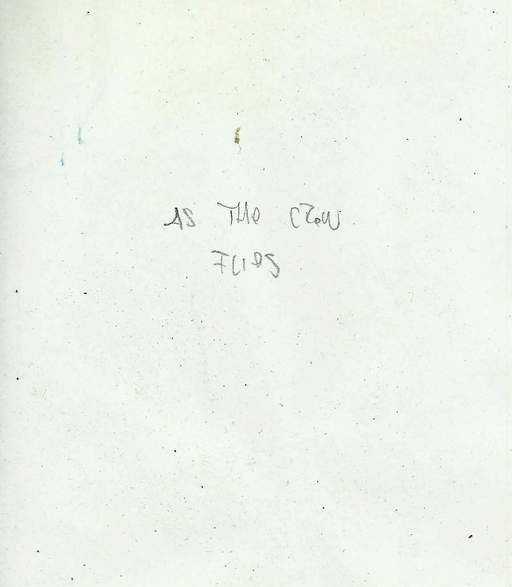 AS THe CRoW
FLIeS